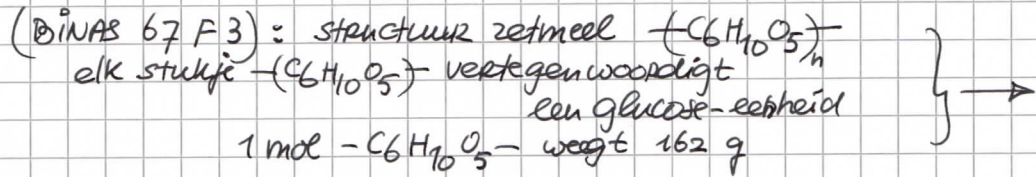 (BINAS 67 F3) : structuur zetmeel -(C6H10O5)n-
elk stukje -(C6H10O5)- vertegenwoordigt
een glucose-eenheid
1 mol - C6H10O5 - weegt 162 g